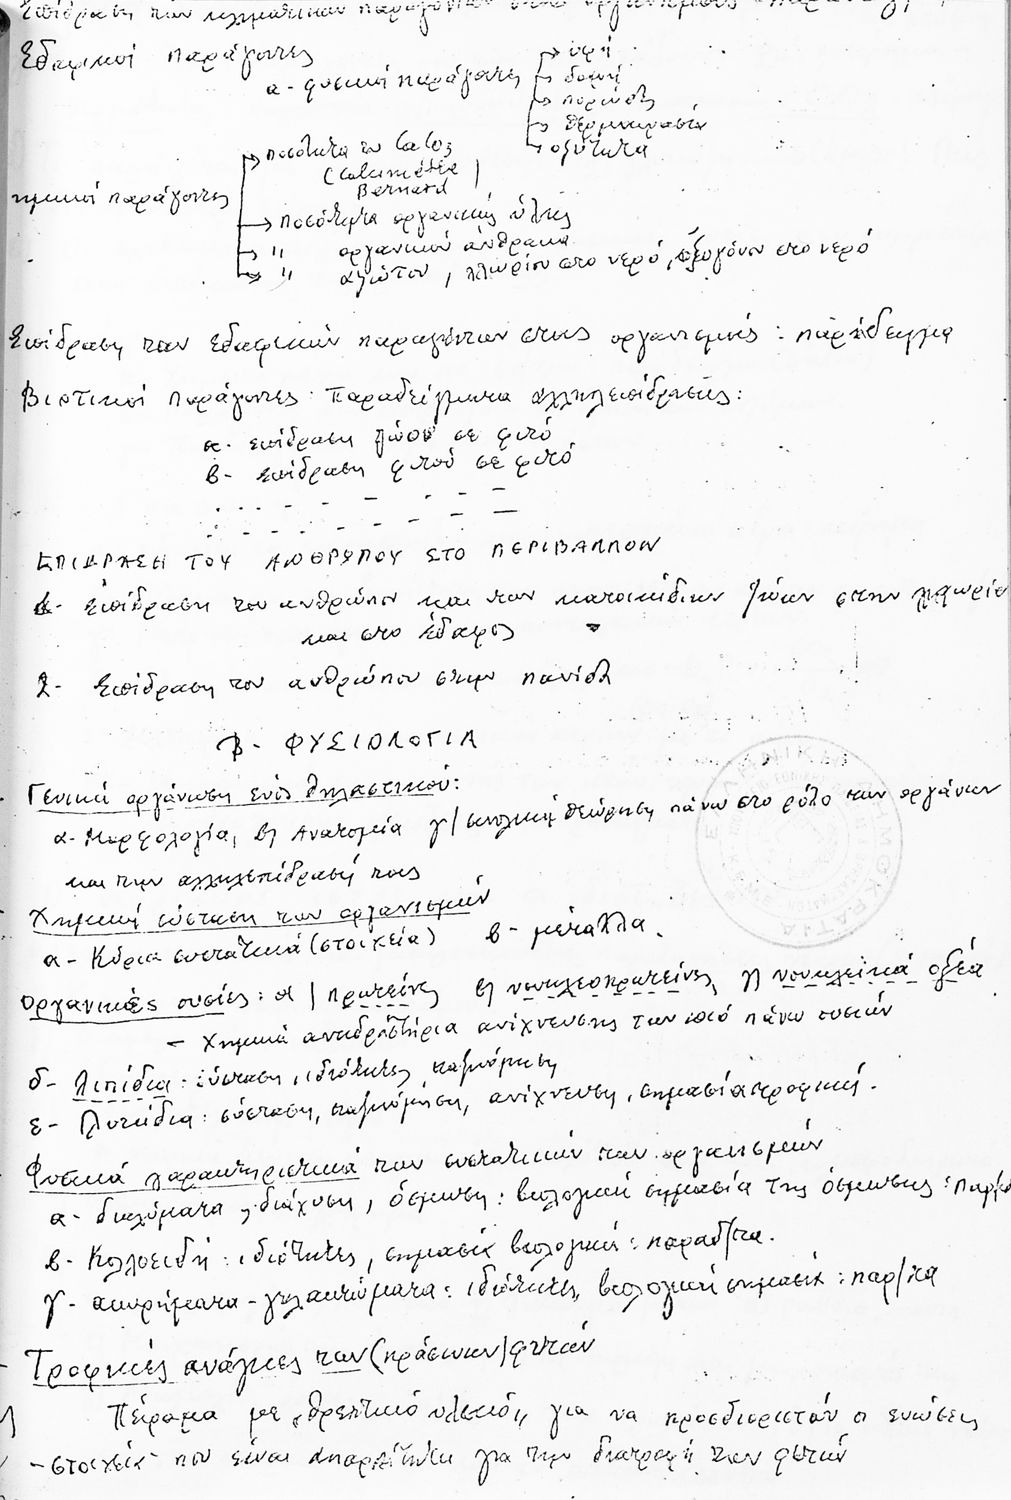 Επίδραση των κλιματικών παραγόντων στους οργανισμούς
Εδαφικοί παράγοντες
α - φυσικοί παράγοντες → υφή
→ δομή
→ πορώδες
→ θερμοκρασία
→ οξύτητα
→ ποσότητα σε CaCO3
(Calcimètre
Bernard)
χημικοί παράγοντες
→ ποσότητα οργανικής ύλης
→ " οργανικού άνθρακα
→ " αζώτου, χλωρίου στο νερό, οξυγόνου στο νερό
Επίδραση των εδαφικών παραγόντων στους οργανισμούς: παράδειγμα
Βιοτικοί παράγοντες: Παραδείγματα αλληλεπίδρασης:
α - επίδραση ζώου σε φυτό
β - επίδραση φυτού σε φυτό
ΕΠΙΔΡΑΣΗ ΤΟΥ ΑΝΘΡΩΠΟΥ ΣΤΟ ΠΕΡΙΒΑΛΛΟΝ
1 - Επίδραση του ανθρώπου και των κατοικίδιων ζώων στην χλωρίδα
και στο έδαφος
2 - Επίδραση του ανθρώπου στην πανίδα
Β - ΦΥΣΙΟΛΟΓΙΑ
Γενική οργάνωση ενός θηλαστικού:
α - Μορφολογία, β) Ανατομία γ) συνολική θεώρηση πάνω στο ρόλο των οργάνων
και την αλληλεπίδρασή τους
Χημική σύσταση των οργανισμών
α - Κύρια συστατικά (στοιχεία) β - μέταλλα.
Οργανικές ουσίες: α) πρωτεΐνες β) νουκλεοπρωτεΐνες γ) νουκλεϊκά οξέα
- Χημικά αντιδραστήρια ανίχνευσης των πιό πάνω ουσιών
δ - Λιπίδια: σύσταση, ιδιότητες, ταξινόμηση
ε - Γλυκίδια: σύσταση, ταξινόμηση, ανίχνευση, σημασία τροφική.
Φυσικά χαρακτηριστικά των συστατικών των οργανισμών
α - διαλύματα, διάχυση, όσμωση: βιολογική σημασία της όσμωσης:
β - Κολλοειδή: ιδιότητες, σημασία βιολογική: παραδ/τα.
γ - αιωρήματα - γαλακτώματα: ιδιότητες, βιολογική σημασία: παρ/τα
Τροφικές ανάγκες των (πράσινων) φυτών
Πείραμα με "θρεπτικό υλικό" για να προσδιοριστούν οι ενώσεις
- στοιχεία - που είναι απαραίτητα για την διατροφή των φυτών
ΕΛΛΗΝΙΚΗ ΔΗΜΟΚΡΑΤΙΑ